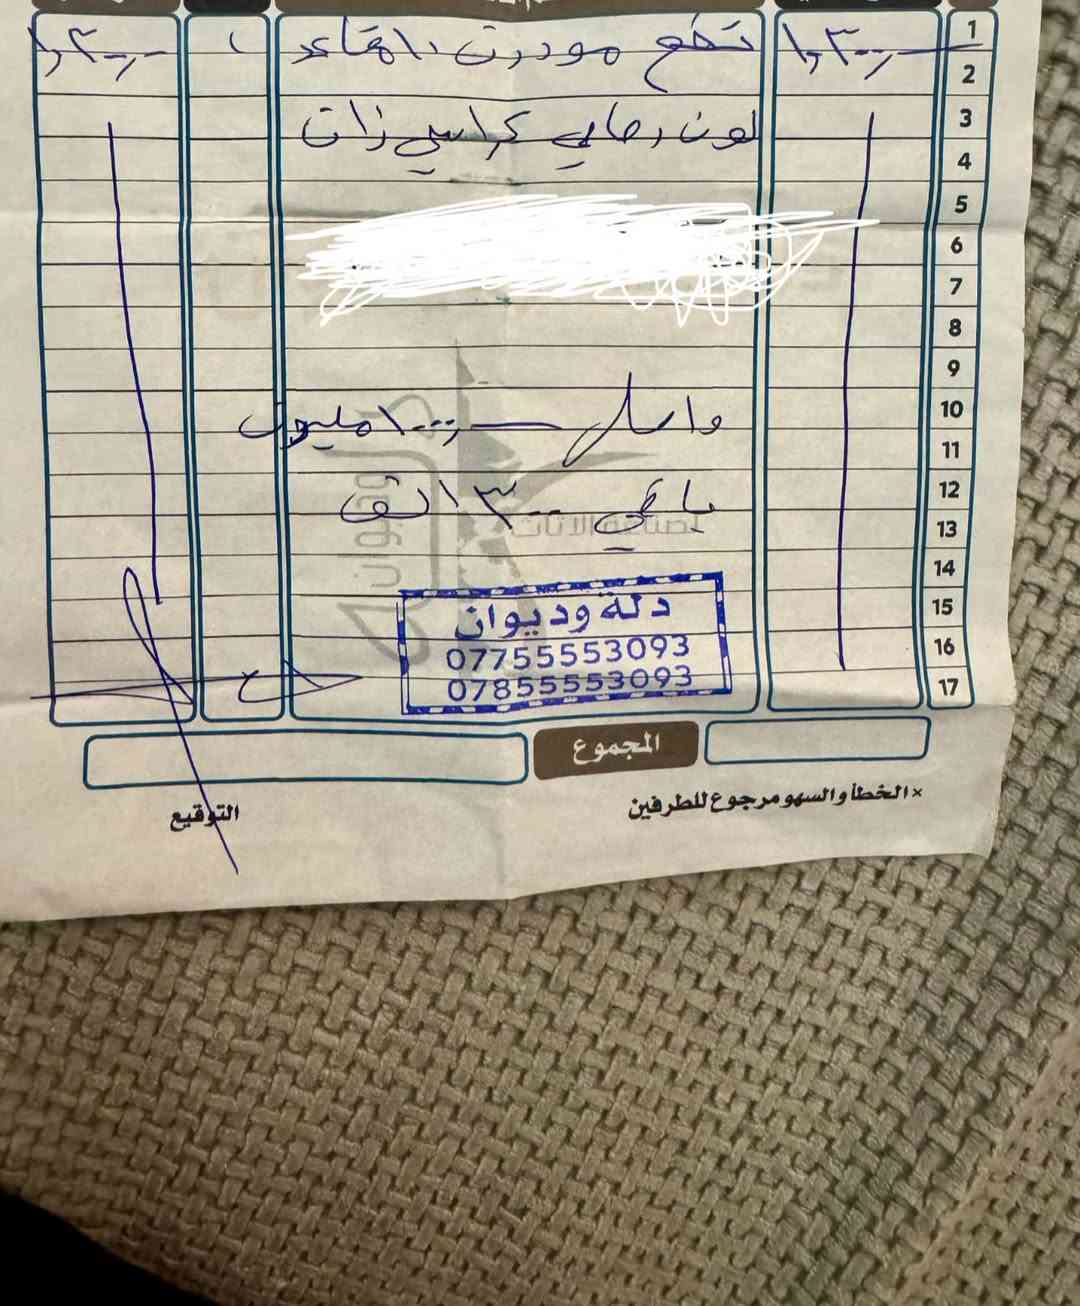 1 ١,٣٠٠,٠٠٠ تخم مودرن ١٠مقاعد ١ ١,٣٠٠,٠٠٠
2
3 لون رصاصي كراسي زان
4
5
6
7
8
9
10 واصل ١,٠٠٠,٠٠٠ مليون
11
12 باقي ٣٠٠ الف
13 لصناعة الاثاث
14
15 دلة وديوان
16 07755553093
17 07855553093
المجموع
×الخطأ والسهو مرجوع للطرفين
التوقيع